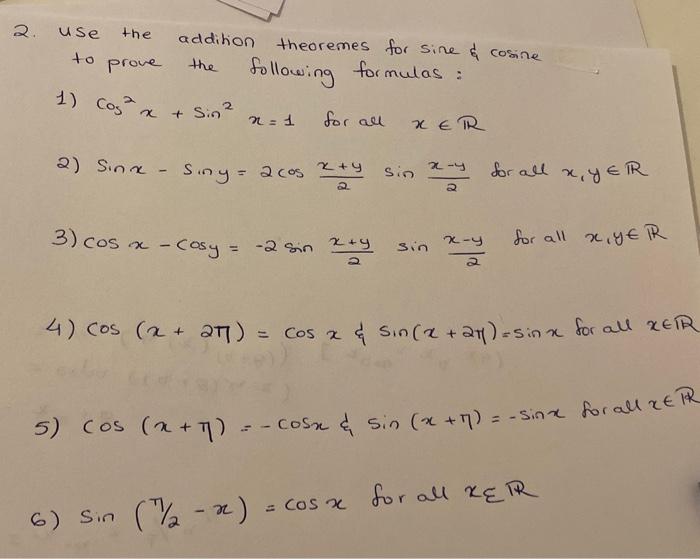 2. use the addition theoremes for sine & cosine
to prove the following formulas :
1) Cos² x + Sin² x = 1 for all x ∈ ℝ
2) Sinx - Siny = 2 cos (x+y)/2 sin (x-y)/2 for all x, y ∈ ℝ
3) cos x - cosy = -2 sin (x+y)/2 sin (x-y)/2 for all x, y ∈ ℝ
4) cos (x + 2π) = cos x & sin(x + 2π) = sin x for all x ∈ ℝ
5) cos (x + π) = - cosx & sin (x + π) = - sinx for all x ∈ ℝ
6) sin (π/2 - x) = cos x for all x ∈ ℝ